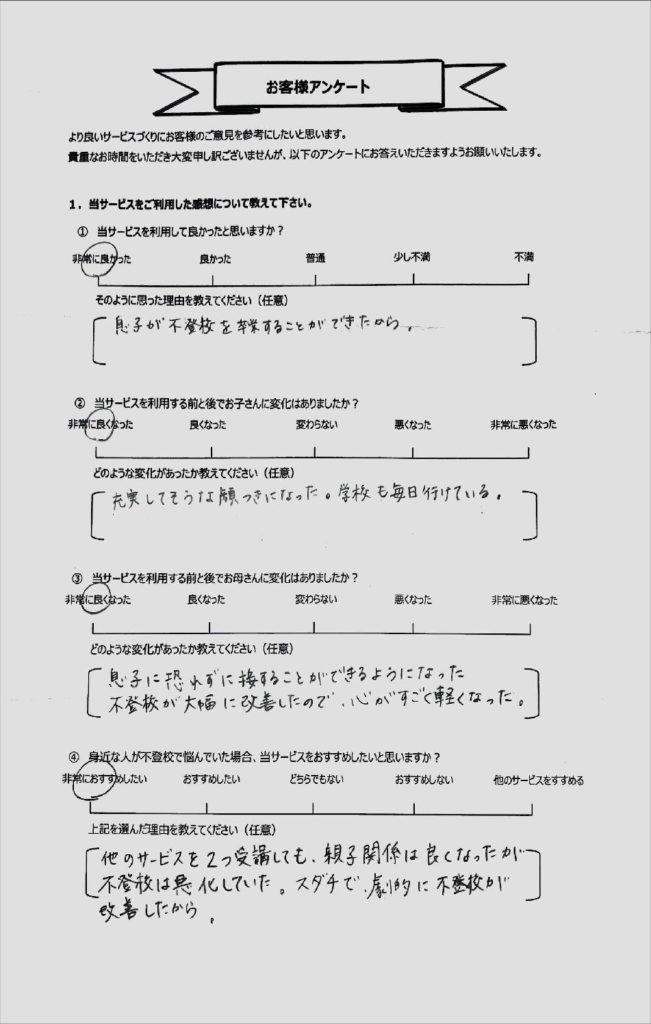 お客様アンケート
より良いサービスづくりにお客様のご意見を参考にしたいと思います。
貴重なお時間をいただき大変申し訳ございませんが、以下のアンケートにお答えいただきますようお願いいたします。
1．当サービスをご利用した感想について教えて下さい。
① 当サービスを利用して良かったと思いますか？
非常に良かった 良かった 普通 少し不満 不満
そのように思った理由を教えてください（任意）
息子が不登校を卒業することができたから。
② 当サービスを利用する前と後でお子さんに変化はありましたか？
非常に良くなった 良くなった 変わらない 悪くなった 非常に悪くなった
どのような変化があったか教えてください（任意）
充実してそうな顔つきになった。学校も毎日行けている。
③ 当サービスを利用する前と後でお母さんに変化はありましたか？
非常に良くなった 良くなった 変わらない 悪くなった 非常に悪くなった
どのような変化があったか教えてください（任意）
息子に恐れずに接することができるようになった
不登校が大幅に改善したので、心がすごく軽くなった。
④ 身近な人が不登校で悩んでいた場合、当サービスをおすすめしたいと思いますか？
非常におすすめしたい おすすめしたい どちらでもない おすすめしない 他のサービスをすすめる
上記を選んだ理由を教えてください（任意）
他のサービスを2つ受講しても、親子関係は良くなったが
不登校は悪化していた。スダチで、劇的に不登校が
改善したから。